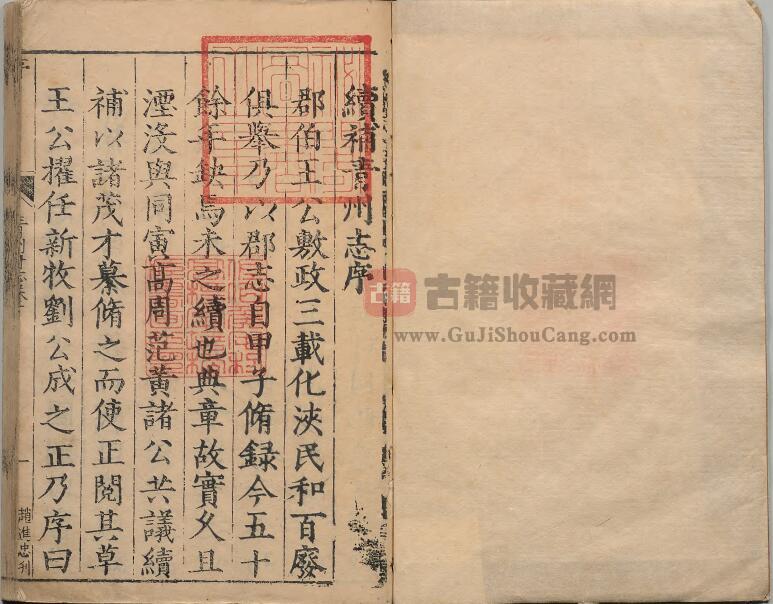 續補青州志序
郡伯王公敷政三載化浹民和百廢
俱舉乃以郡志自甲子脩録今五十
餘年缺焉未之續也典章故實久且
湮没與同寅髙周范黄諸公共議續
補以諸茂才纂脩之而使正閱其草
王公擢任新牧劉公成之正乃序曰
趙進忠刊
古籍
古籍收藏網
www.GuJiShouCang.com